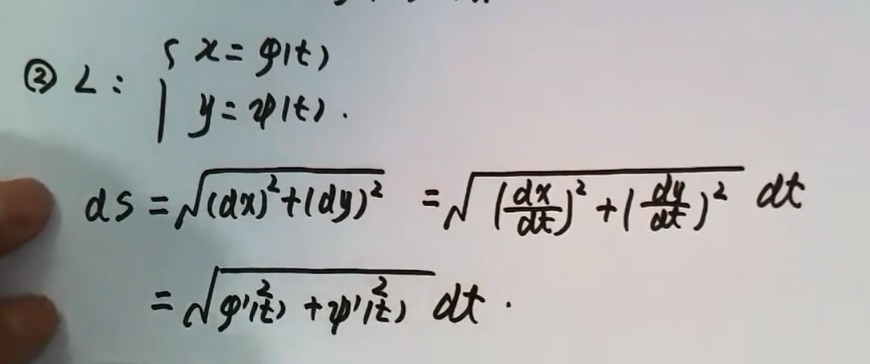 ② L: { x = φ(t)
y = ψ(t).
ds = √((dx)² + (dy)²) = √((dx/dt)² + (dy/dt)²) dt
= √(φ'²(t) + ψ'²(t)) dt.